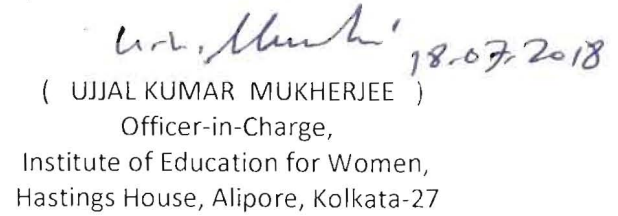 18.07.2018
( UJJAL KUMAR MUKHERJEE )
Officer-in-Charge,
Institute of Education for Women,
Hastings House, Alipore, Kolkata-27